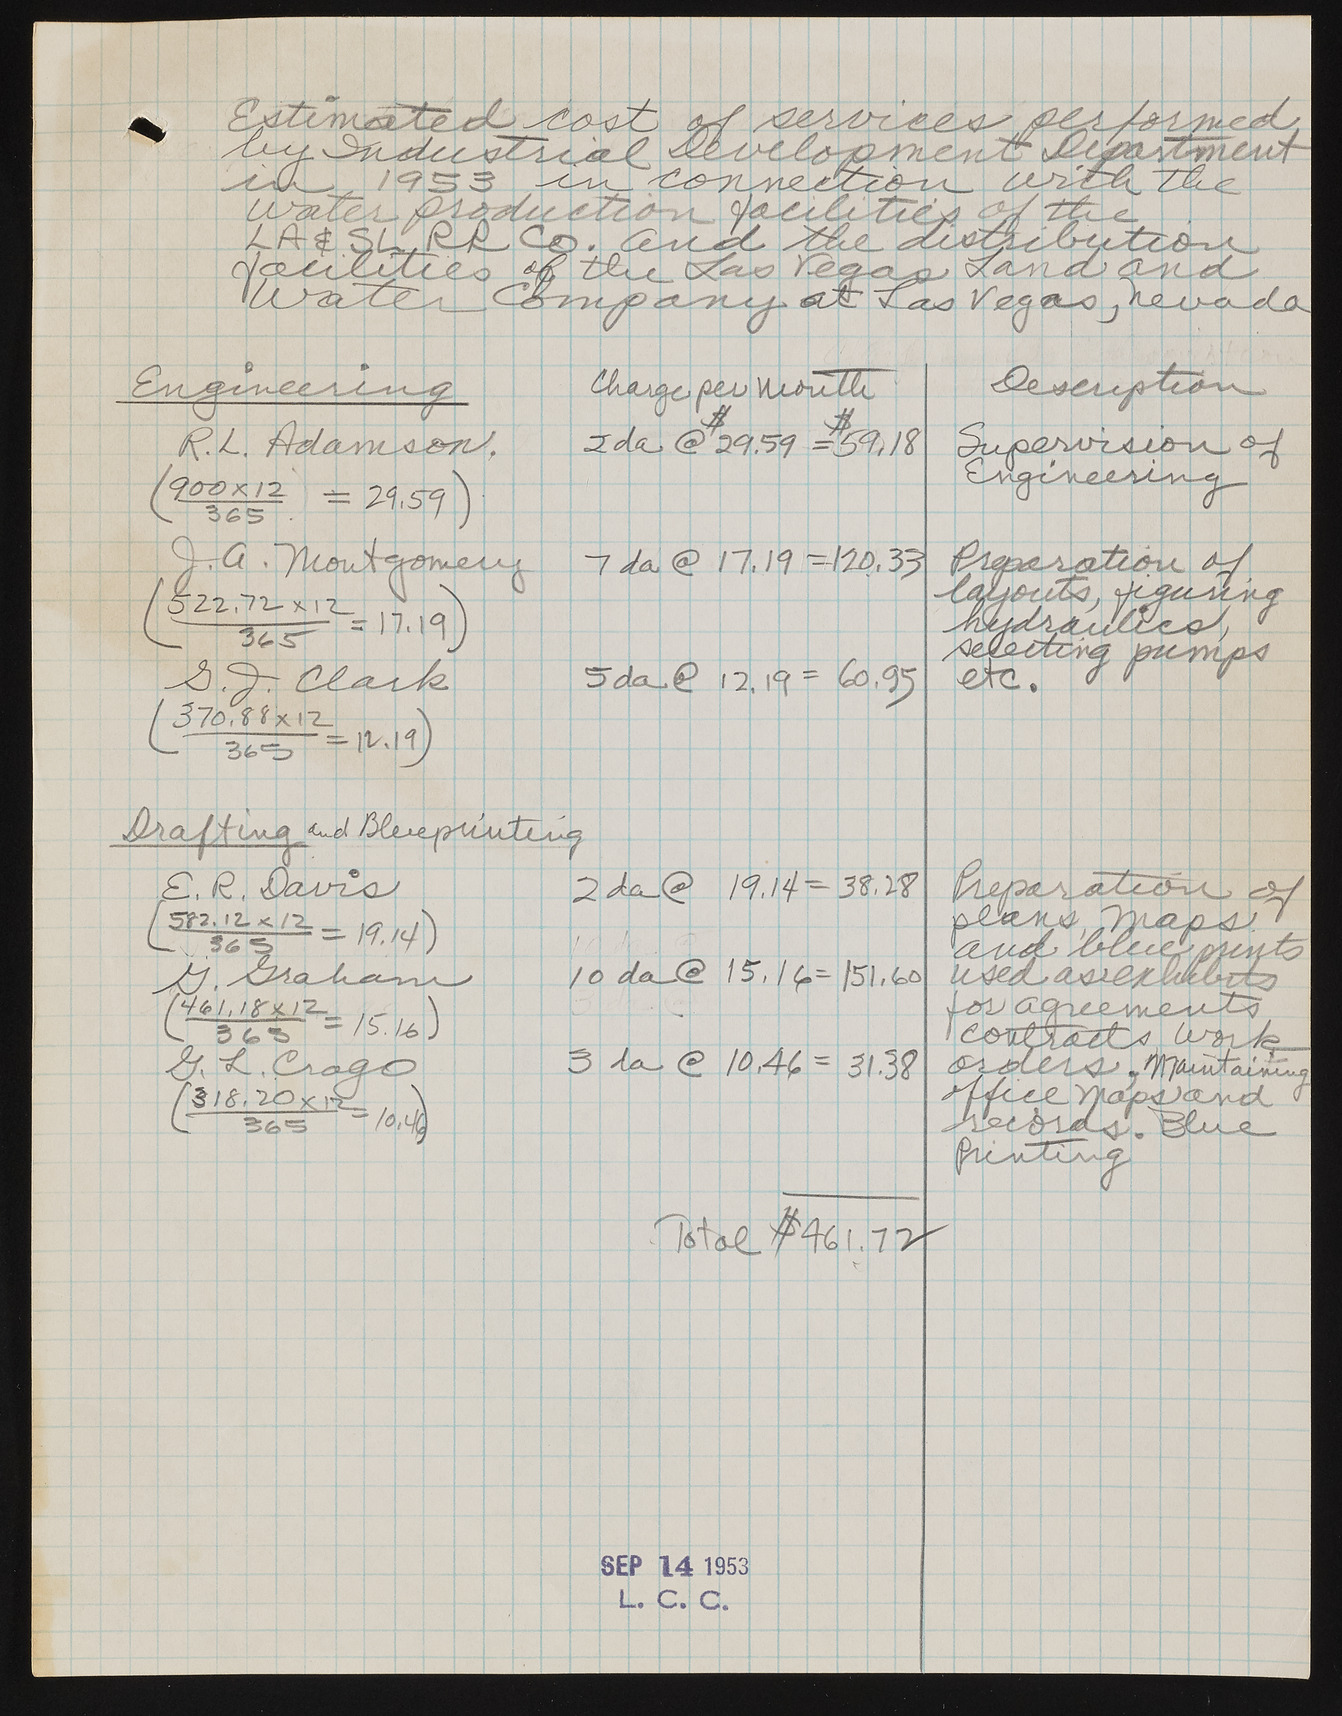 Estimated cost of services performed
by Industrial Development Department
in 1953 in connection with the
water production facilities of the
LA & SL RR Co. and the distribution
facilities of the Las Vegas Land and
Water Company at Las Vegas, Nevada
Engineering Charge per Month Description
R.L. Adamson. 2 da @ $29.59 = $59.18 Supervision of
Engineering
(900 x 12 / 365 = 29.59)
J.A. Montgomery 7 da @ 17.19 = 120.33 Preparation of
layouts, figuring
(522.72 x 12 / 365 = 17.19) hydraulics,
selecting pumps
G.J. Clark 5 da @ 12.19 = 60.95 etc.
(370.88 x 12 / 365 = 12.19)
Drafting and Blueprinting
E. R. Davis 2 da @ 19.14 = 38.28 Preparation of
(582.12 x 12 / 365 = 19.14) plans, Maps
and blue prints
G. Graham 10 da @ 15.16 = 151.60 used as exhibits
(461.18 x 12 / 365 = 15.16) for agreements
contracts work
G. L. Crago 3 da @ 10.46 = 31.38 orders, Maintaining
(318.20 x 12 / 365 = 10.46) office Maps and
records. Blue
Printing
Total $461.72
SEP 14 1953
L. C. C.